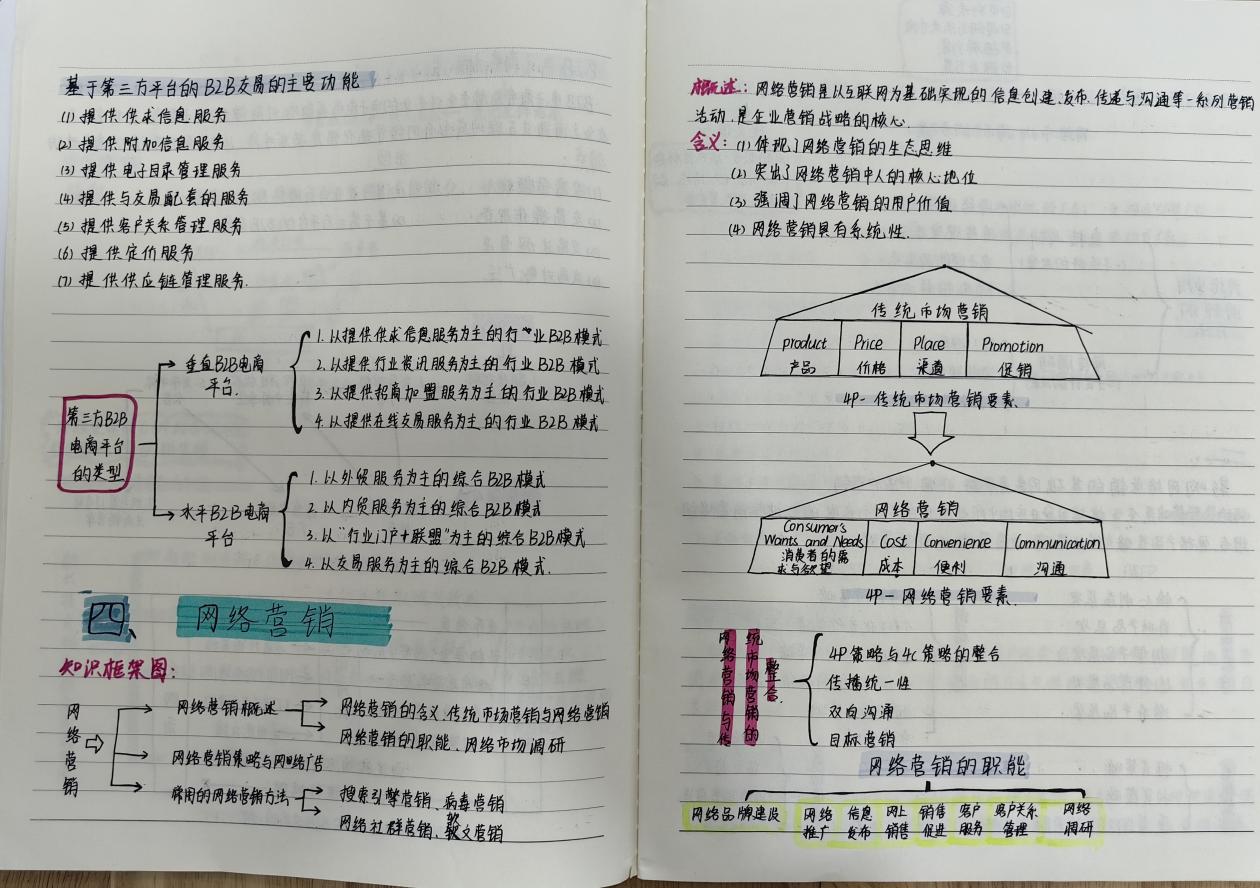 基于第三方平台的B2B交易的主要功能
(1) 提供供求信息服务
(2) 提供附加信息服务
(3) 提供电子目录管理服务
(4) 提供与交易配套的服务
(5) 提供客户关系管理服务
(6) 提供定价服务
(7) 提供供应链管理服务.
第三方B2B
电商平台
的类型
垂直B2B电商
平台.
1. 以提供供求信息服务为主的行业B2B模式
2. 以提供行业资讯服务为主的行业B2B模式
3. 以提供招商加盟服务为主的行业B2B模式
4. 以提供在线交易服务为主的行业B2B模式
水平B2B电商
平台
1. 以外贸服务为主的综合B2B模式
2. 以内贸服务为主的综合B2B模式
3. 以“行业门户+联盟”为主的综合B2B模式
4. 以交易服务为主的综合B2B模式.
四、 网络营销
知识框架图:
网络营销
网络营销概述
网络营销的含义、传统市场营销与网络营销
网络营销的职能、网络市场调研
网络营销策略与网络广告
常用的网络营销方法
搜索引擎营销、病毒营销
网络社群营销、软文营销
概述: 网络营销是以互联网为基础实现的信息创建、发布、传递与沟通等一系列营销
活动,是企业营销战略的核心.
含义: (1) 体现了网络营销的生态思维
(2) 突出了网络营销中人的核心地位
(3) 强调了网络营销的用户价值
(4) 网络营销具有系统性.
传统市场营销
product Price Place Promotion
产品 价格 渠道 促销
4P-传统市场营销要素.
网络营销
Consumer's
Wants and Needs Cost Convenience Communication
消费者的需
求与欲望 成本 便利 沟通
4P-网络营销要素.
网络营销与传
统市场营销的
整合.
4P策略与4C策略的整合
传播统一性
双向沟通
目标营销
网络营销的职能
网络品牌建设 网络推广 信息发布 网上销售 销售促进 客户服务 客户关系管理 网络调研